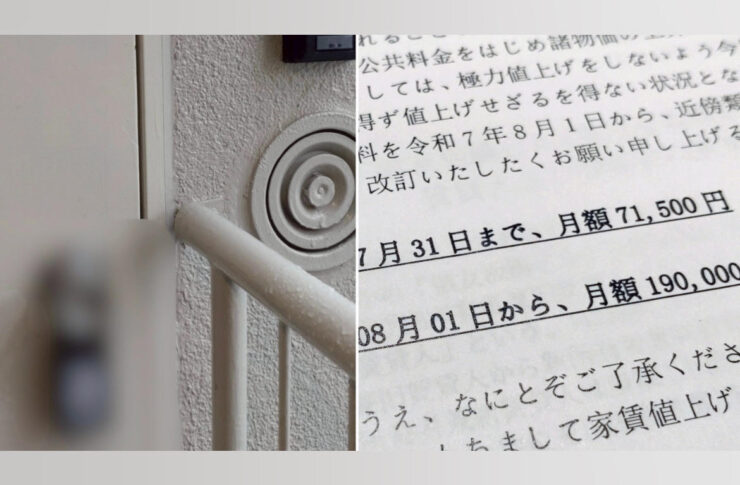 公共料金をはじめ諸物価の
しては、極力値上げをしないよう今
得ず値上げせざるを得ない状況とな
料を令和7年8月1日から、近傍類
改訂いたしたくお願い申し上げる
7月31日まで、月額71,500円
08月01日から、月額190,000
うえ、なにとぞご了承くださ
しまして家賃値上げ